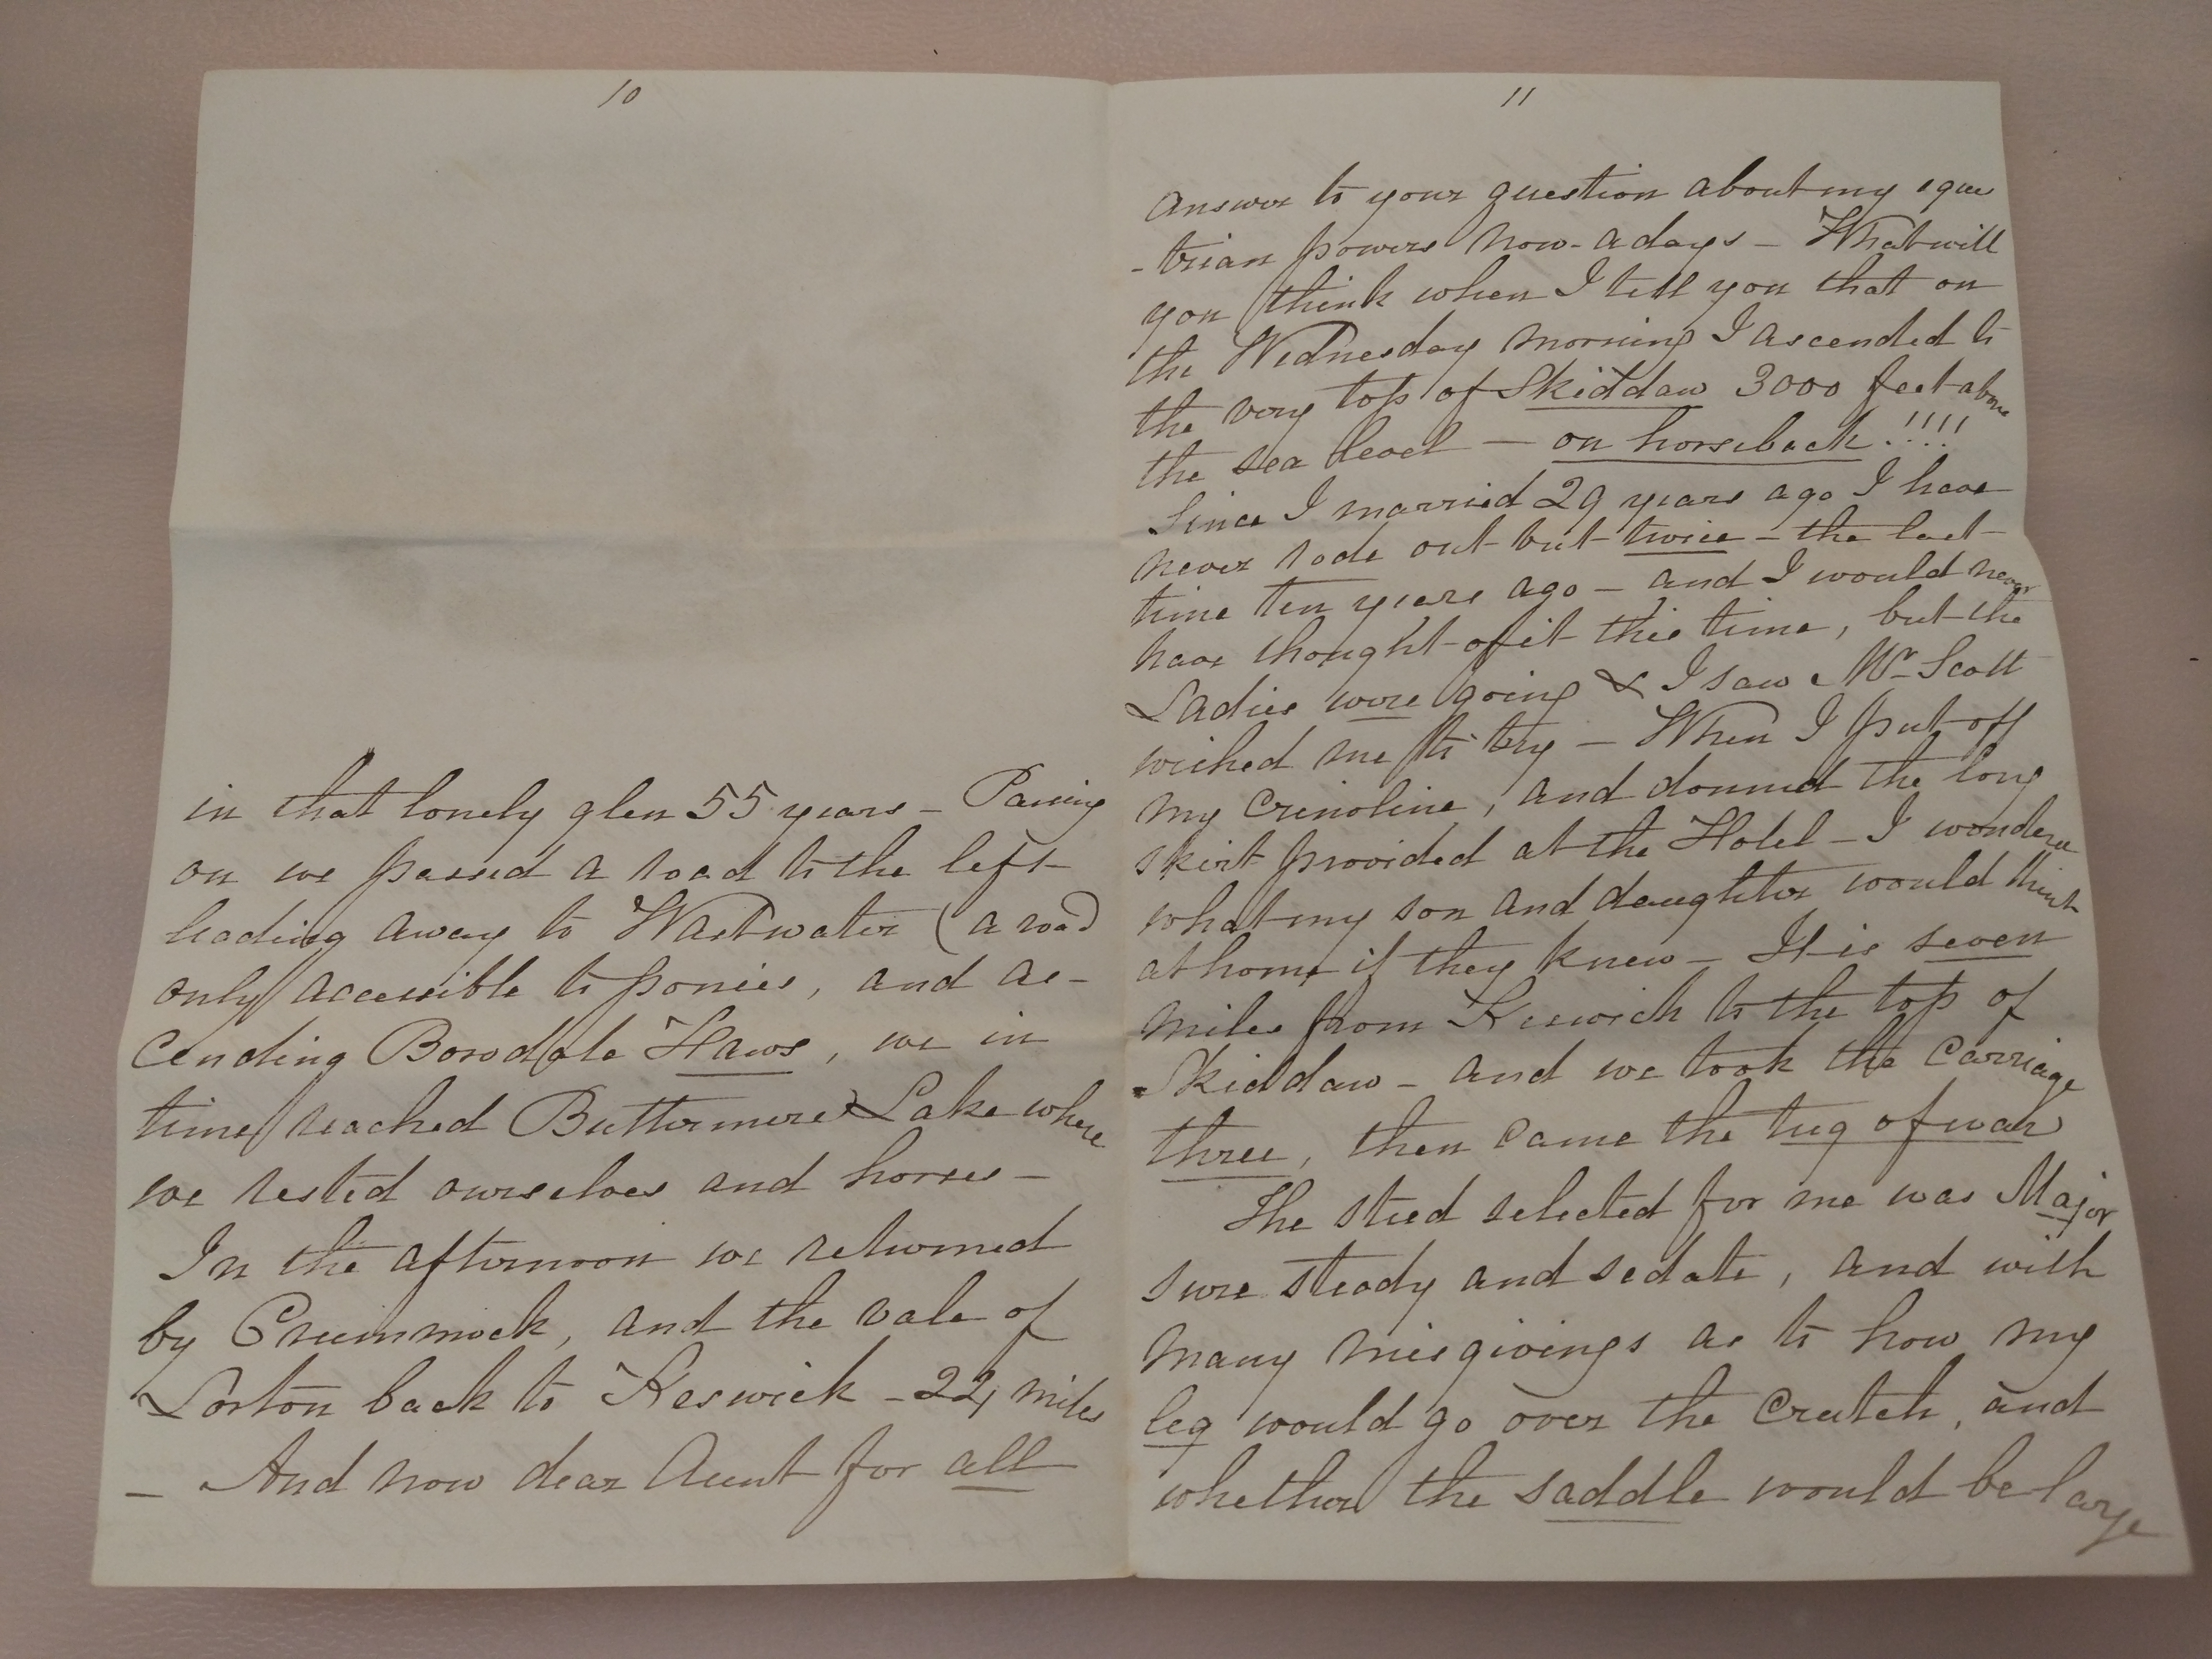 10
in that lonely glen 55 years – Passing
on we passed a road to the left
leading away to Wastwater (a road
only accessible to ponies, and as-
cending Borodale Haws, we in
time reached Buttermere Lake where
we rested ourselves and horses –
In the afternoon we returned
by Crummock, and the vale of
Lorton back to Keswick – 22 miles
– And now dear Aunt for all
11
answer to your question about my eques
-trian powers now-a days – What will
you think when I tell you that on
the Wednesday morning I ascended to
the very top of Skiddaw 3000 feet above
the sea level – on horseback!!!!
Since I married 29 years ago I have
never rode out but twice – the last
time ten years ago – and I would never
have thought of it this time, but the
Ladies were going & I saw Mr Scott
wished me to try – When I put off
my Crinoline, and donned the long
skirt provided at the Hotel – I wondered
what my son and daughter would think
at home if they knew – It is seven
miles from Keswick to the top of
Skiddaw – and we took the Carriage
three, then came the tug of war
The steed selected for me was Major
sure steady and sedate, and with
many misgivings as to how my
leg would go over the Crutch, and
whether the saddle would be large